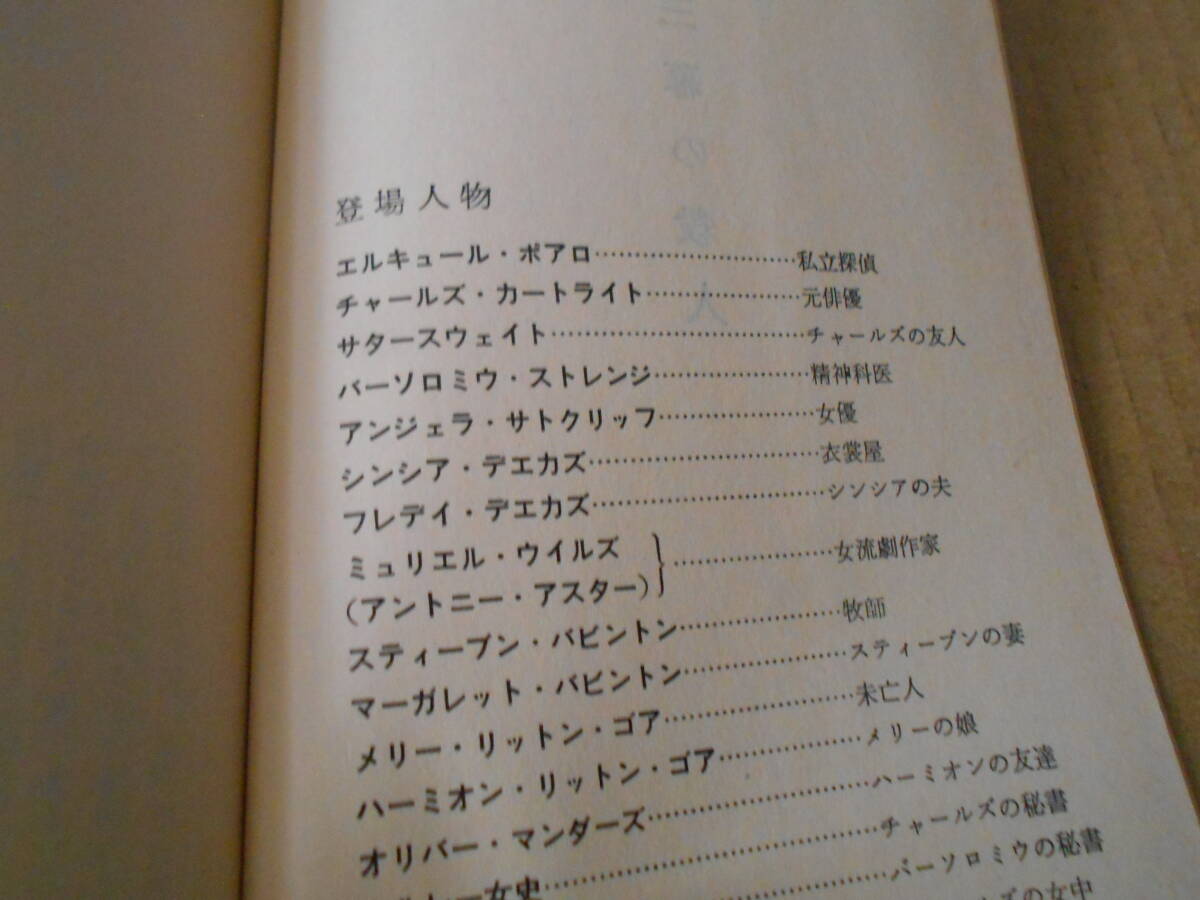 登場人物
エルキュール・ポアロ…………………………私立探偵
チャールズ・カートライト…………………元俳優
サタースウェイト………………………………チャールズの友人
バーソロミウ・ストレンジ…………………精神科医
アンジェラ・サトクリッフ…………………女優
シンシア・デエカズ……………………………衣裳屋
フレデイ・デエカズ……………………………シンシアの夫
ミュリエル・ウイルズ
(アントニー・アスター)}……………………女流劇作家
スティーブン・バビントン…………………牧師
マーガレット・バビントン…………………スティーブンの妻
メリー・リットン・ゴア……………………未亡人
ハーミオン・リットン・ゴア………………メリーの娘
オリバー・マンダーズ………………………ハーミオンの友達
女史……………………………………チャールズの秘書
バーソロミウの秘書
ズの女中